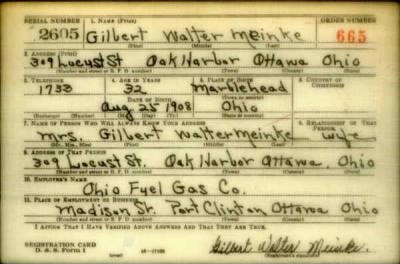 SERIAL NUMBER 1. NAME (Print) ORDER NUMBER
2605 Gilbert Walter Meinke 665
(First) (Middle) (Last)
2. ADDRESS (Print)
309 Locust St Oak Harbor Ottawa Ohio
(Number and street or R. F. D. number) (Town) (County) (State)
3. TELEPHONE 4. AGE IN YEARS 5. PLACE OF BIRTH 6. COUNTRY OF CITIZENSHIP
1733 32 Marblehead
DATE OF BIRTH (Town or county)
Aug 25 1908 Ohio
(Exchange) (Number) (Mo.) (Day) (Yr.) (State or country)
7. NAME OF PERSON WHO WILL ALWAYS KNOW YOUR ADDRESS 8. RELATIONSHIP OF THAT PERSON
Mrs. Gilbert Walter Meinke wife
(Mr., Mrs., Miss) (First) (Middle) (Last)
9. ADDRESS OF THAT PERSON
309 Locust St. Oak Harbor Ottawa, Ohio
(Number and street or R. F. D. number) (Town) (County) (State)
10. EMPLOYER'S NAME
Ohio Fuel Gas Co.
11. PLACE OF EMPLOYMENT OR BUSINESS
Madison St. Port Clinton Ottawa Ohio
(Number and street or R. F. D. number) (Town) (County) (State)
I AFFIRM THAT I HAVE VERIFIED ABOVE ANSWERS AND THAT THEY ARE TRUE.
REGISTRATION CARD
D. S. S. Form 1 Gilbert Walter Meinke